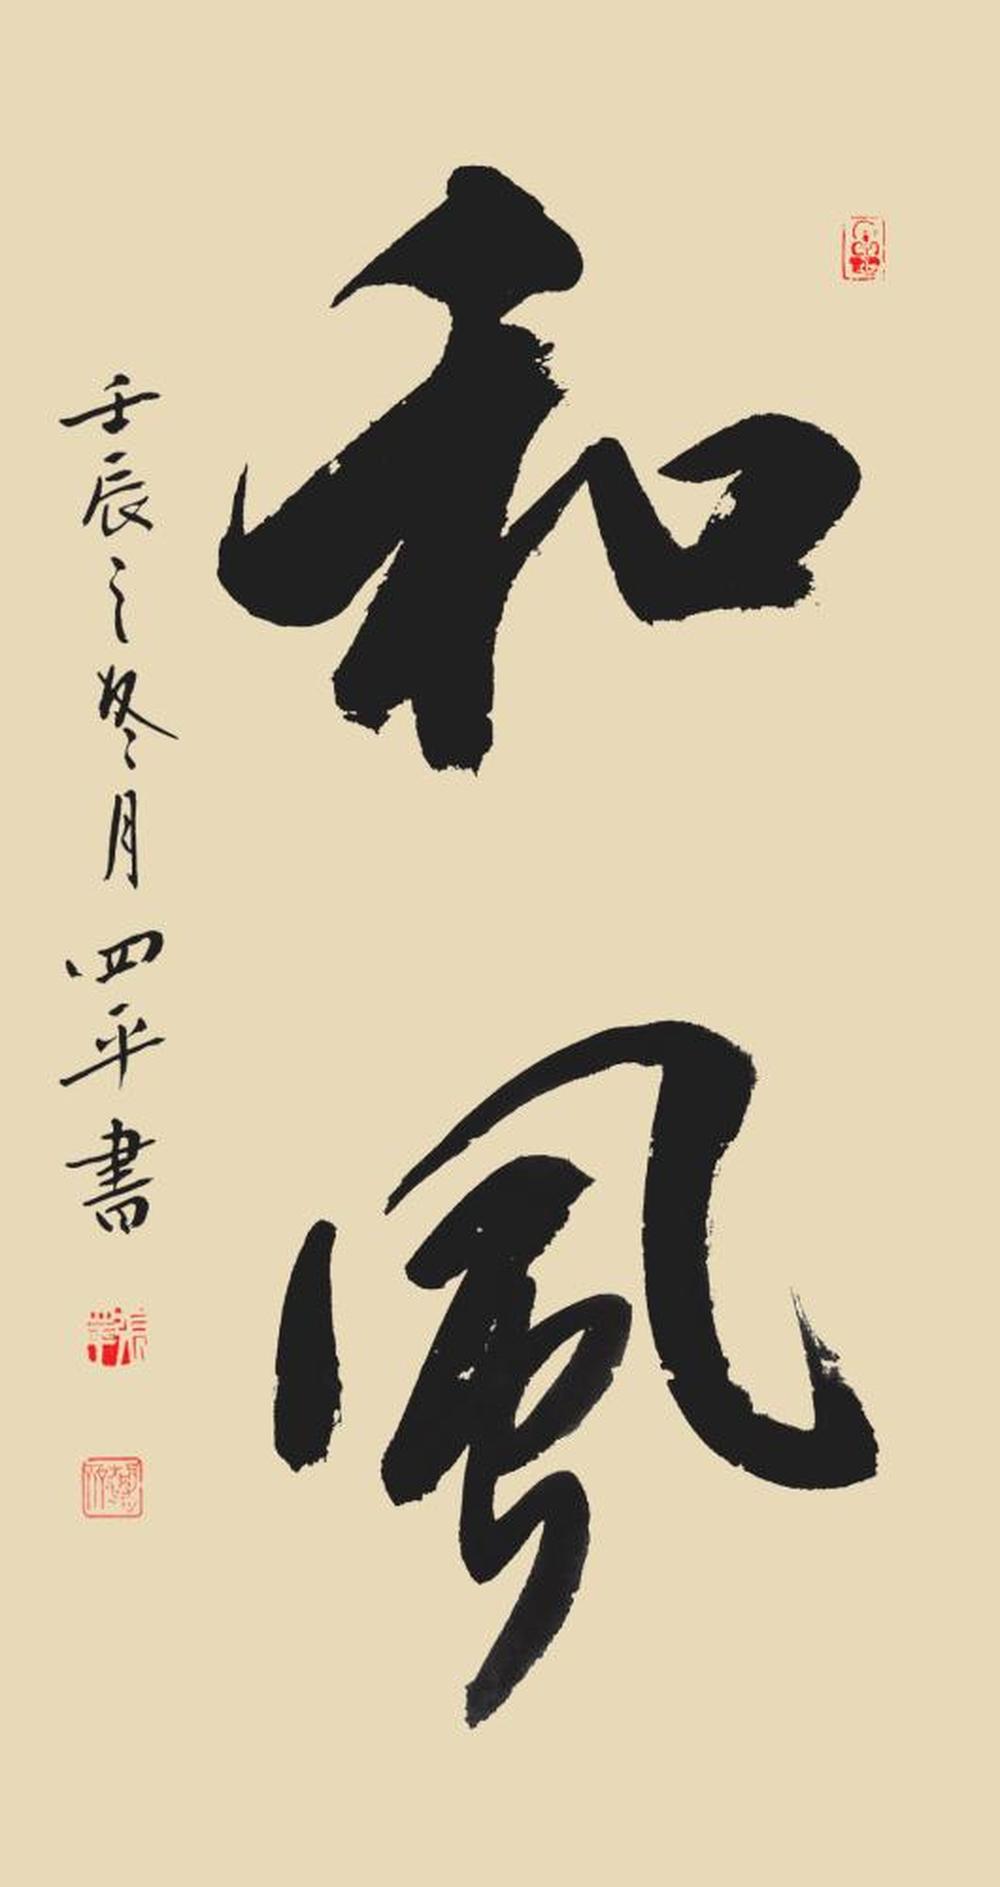 和風
壬辰之冬月四平書